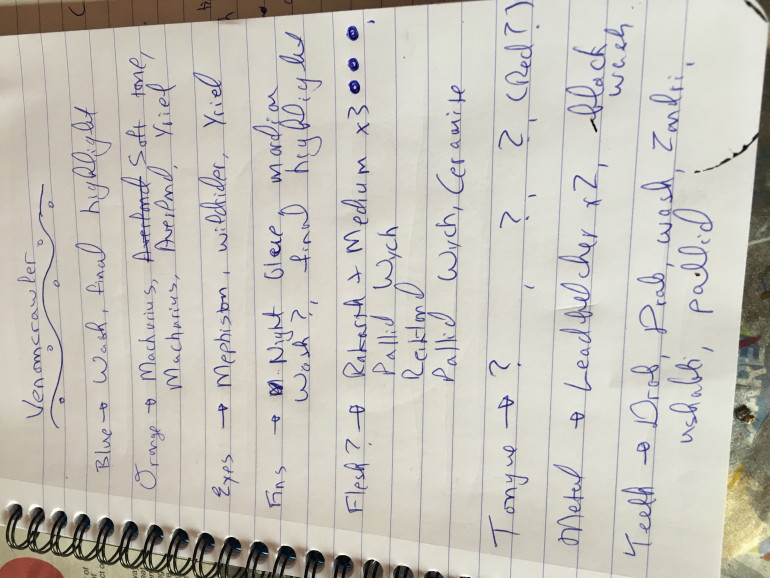 Venomcrawler
Blue → Wash, final highlight
Orange → Macharius, Averland Soft tone,
Macharius, Averland, Yriel
Eyes → Mephiston, wildrider, Yriel
Fins → Night
Wash?, final highlight
Flesh? → Rakarth + Medium x3
Pallid Wych
Reikland
Pallid Wych, Ceramite
Tongue → ? , ? , ? , (Red?)
Metal → Leadbelcher x2, black
wash.
Teeth → Drab, Drab, wash, Zandri,
ushabti, pallid